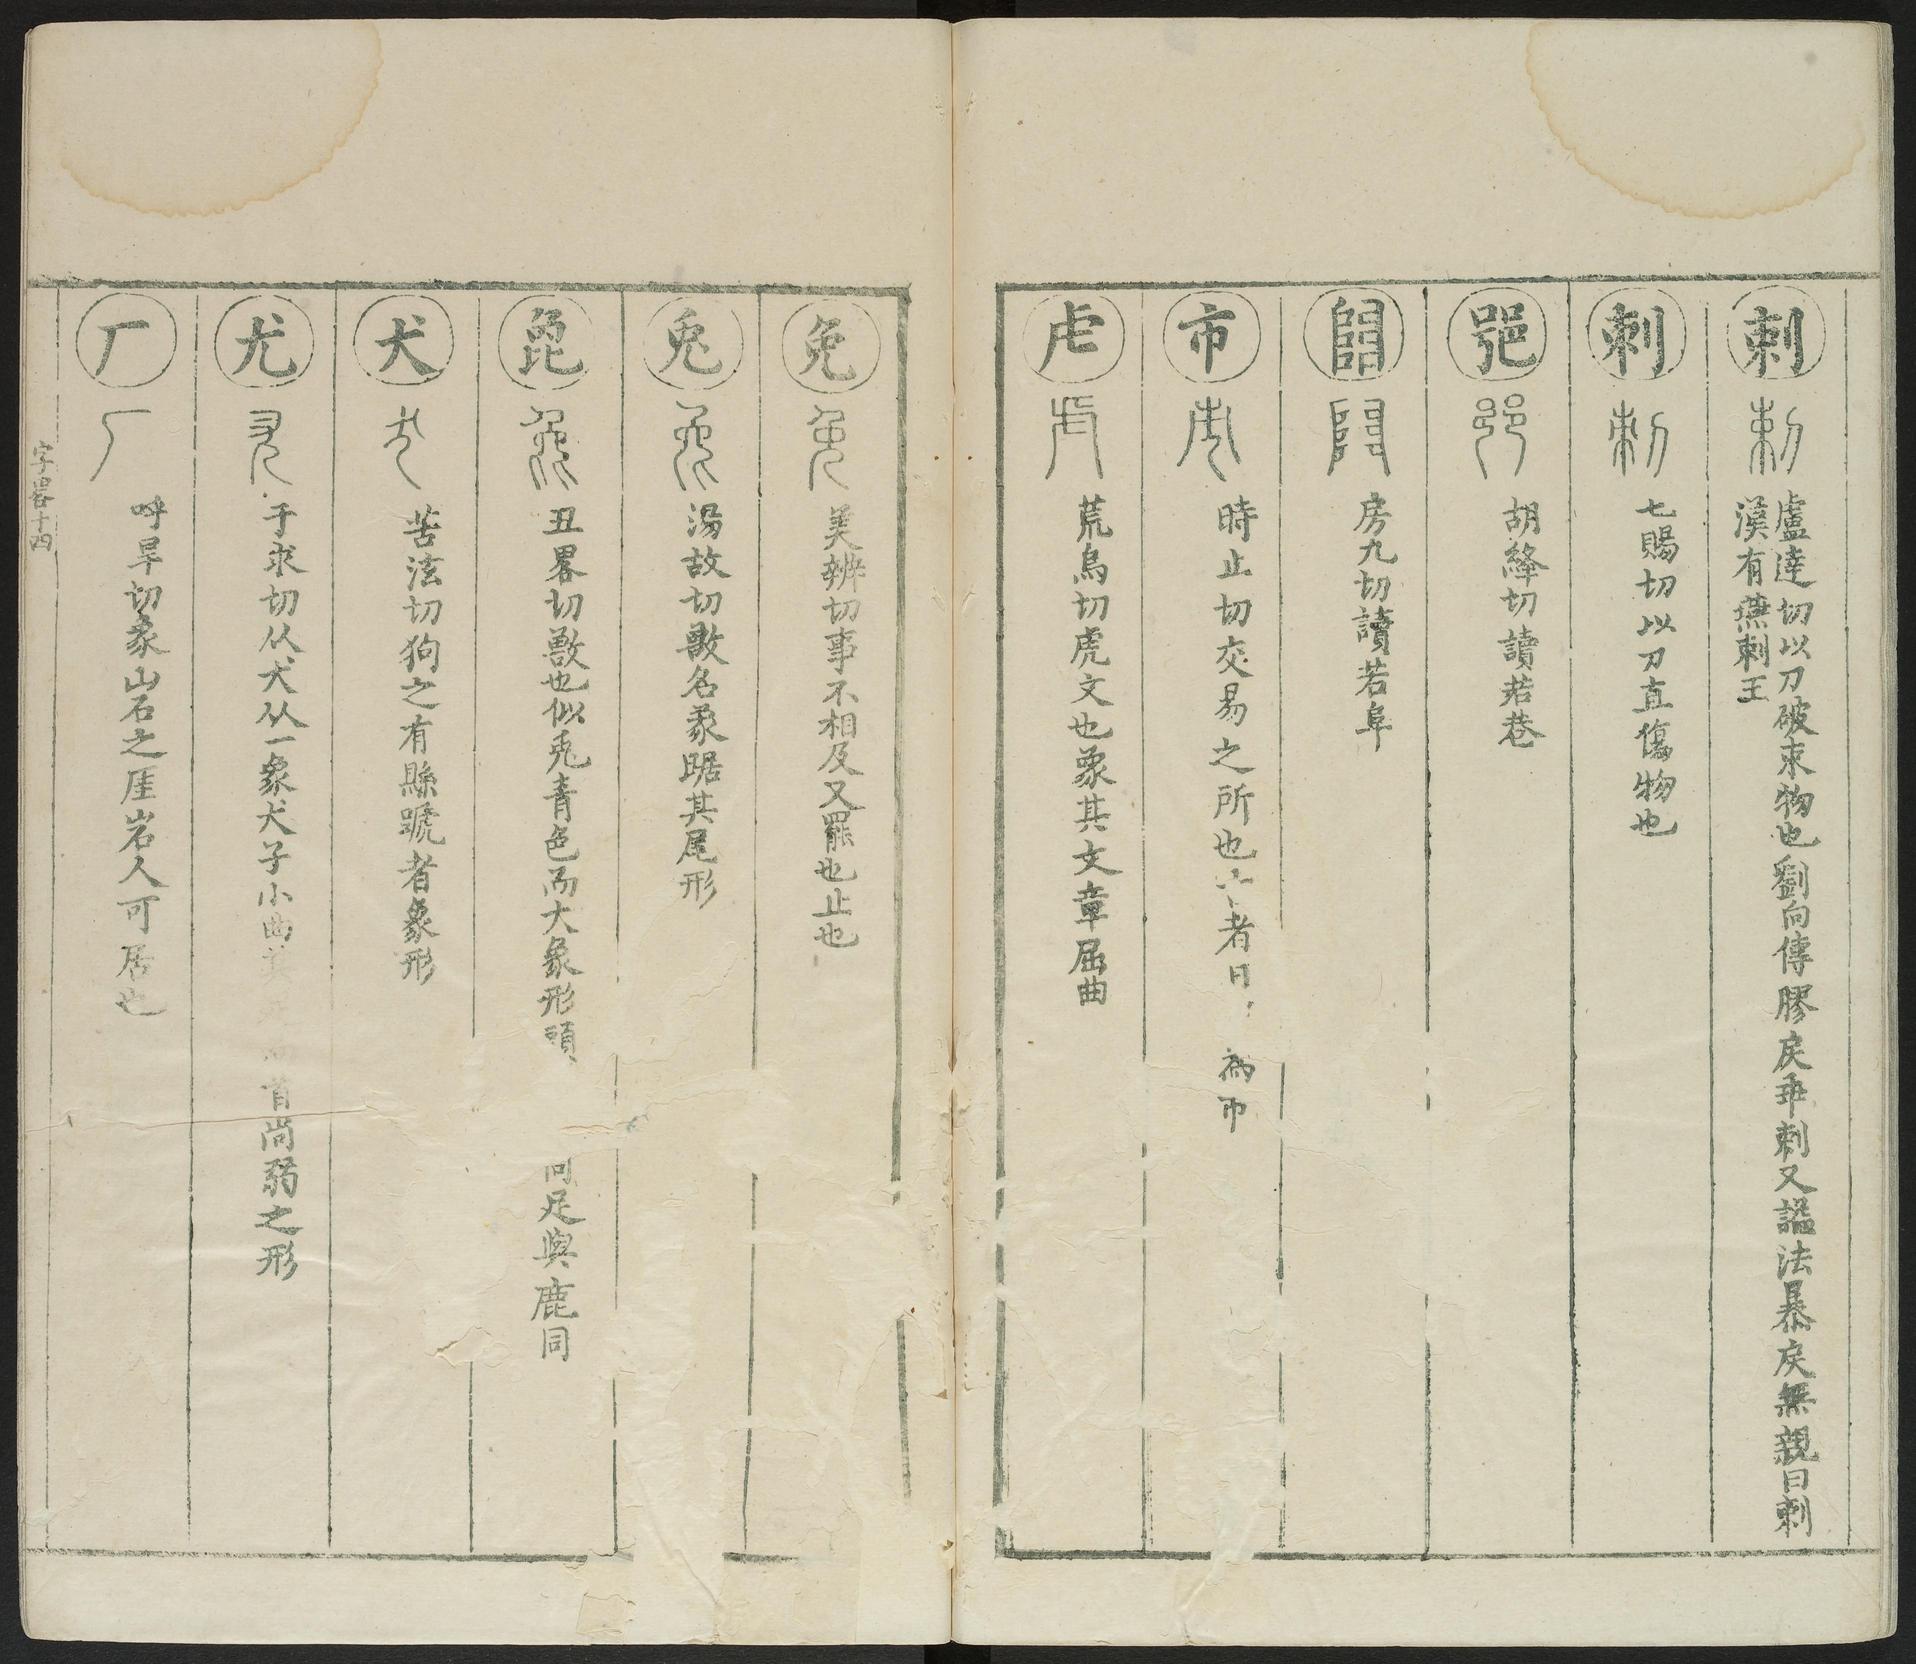 剌 盧達切以刀破束物也劉向傳膠戾乖剌又諡法暴戾無親曰剌
漢有燕剌王
刺 七賜切以刀直傷物也
胡絳切讀若巷
房九切讀若阜
市 時止切交易之所也 者日 為市
虍 荒烏切虎文也象其文章屈曲
免 美辨切事不相及又罷也止也
兎 湯故切獸名象踞其尾形
㲋 丑畧切獸也似兎青色而大象形頭 同足與鹿同
犬 苦泫切狗之有縣蹏者象形
尤 于求切从犬从一象犬子小曲 首尚弱之形
厂 呼旱切象山石之厓岩人可居也
字畧十四